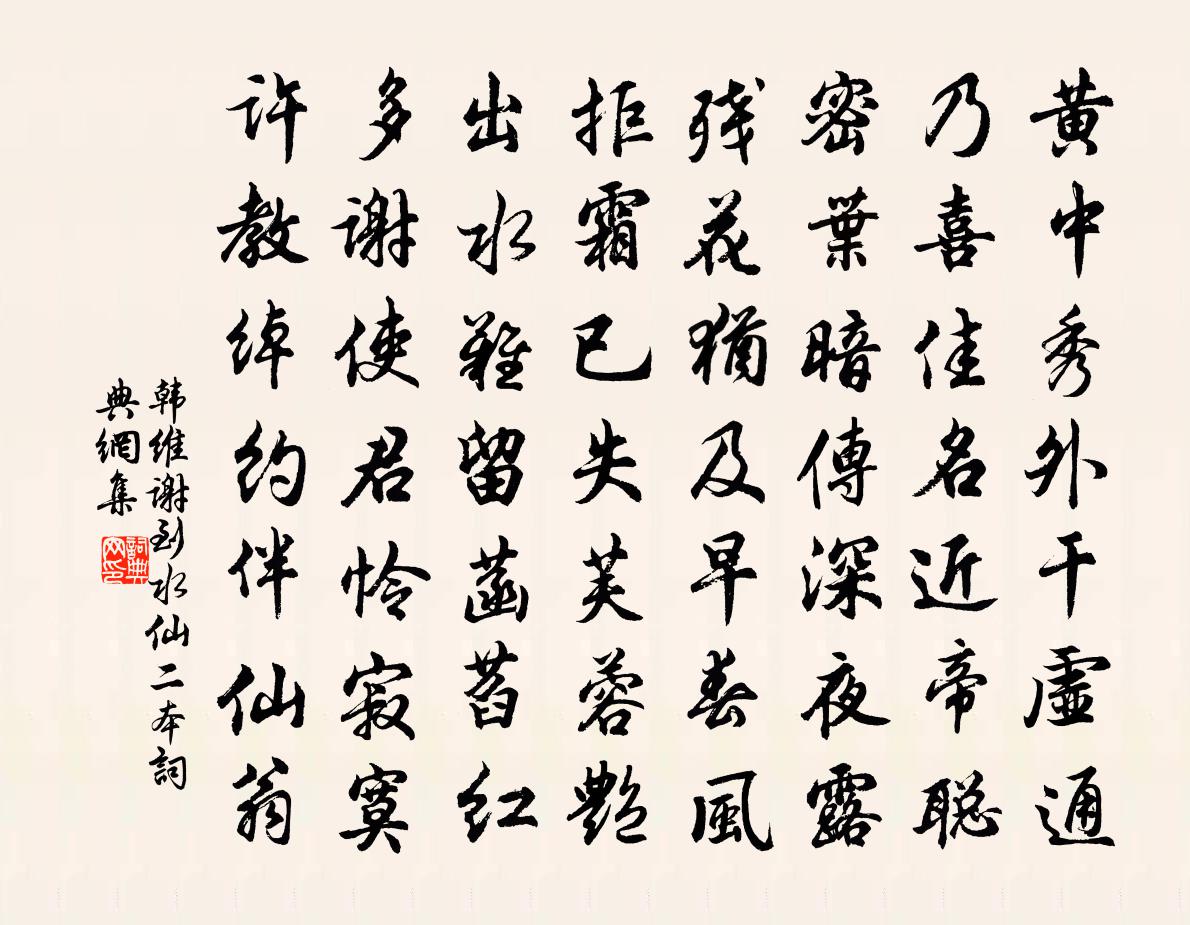 黄中秀外干虚通
乃喜佳名近帝聪
密葉暗傳深夜露
残花猶及早春風
拒霜已失芙蓉艷
出水難留菡萏红
多谢使君怜寂寞
许教绰约伴仙翁
韩维谢到水仙二本詞
典網集
詞典
网印